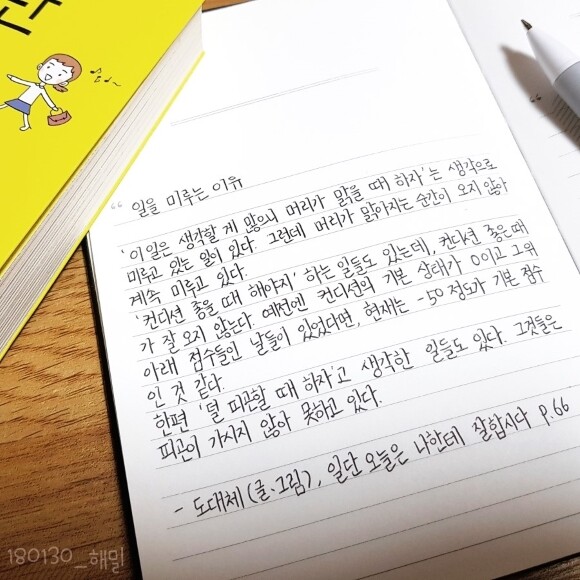 “ 일을 미루는 이유
'이 일은 생각할 게 많으니 머리가 맑을 때 하자'는 생각으로
미루고 있는 일이 있다. 그런데 머리가 맑아지는 순간이 오지 않아
계속 미루고 있다.
'컨디션 좋을 때 해야지' 하는 일들도 있는데, 컨디션 좋은 때
가 잘 오지 않는다. 예전엔 컨디션의 기본 상태가 0이고 그 위
아래 점수들인 날들이 있었다면, 현재는 -50 정도가 기본 점수
인 것 같다.
한편 '덜 피곤할 때 하자'고 생각한 일들도 있다. 그것들은
피곤이 가시지 않아 못하고 있다.
- 도대체 (글·그림), 일단 오늘은 나한테 잘합시다 p.66
180130_해밀